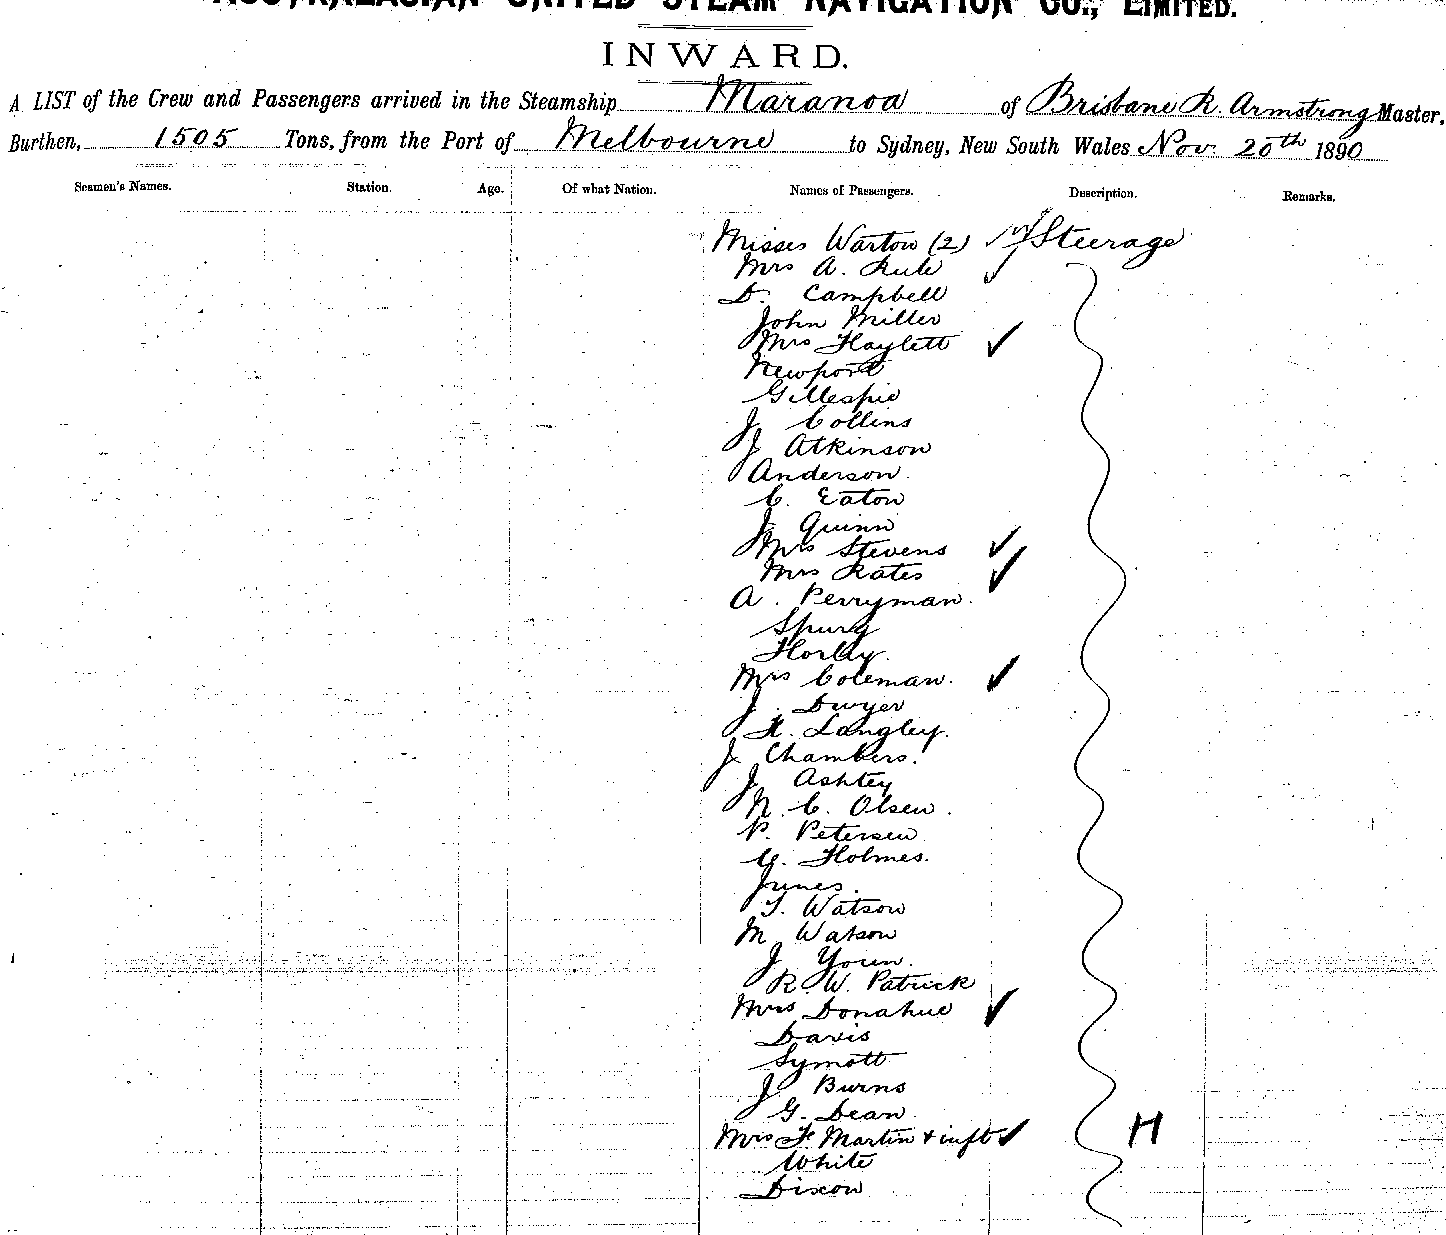 AUSTRALASIAN UNITED STEAM NAVIGATION CO., LIMITED.
INWARD.
A LIST of the Crew and Passengers arrived in the Steamship Maranoa of Brisbane R. Armstrong Master,
Burthen, 1505 Tons, from the Port of Melbourne to Sydney, New South Wales Nov. 20th 1890
Seamen's Names. Station. Age. Of what Nation. Names of Passengers. Description. Remarks.
Misses Warton (2) Steerage
Mrs A. Rule
D. Campbell
John Miller
Mrs Haylett
Newport
Gillespie
J Collins
J Atkinson
Anderson
C. Eaton
J Quinn
Mrs Stevens
Mrs Kates
A. Perryman
Spurg
Horley
Mrs Coleman.
J. Dwyer
H. Langley.
J. Chambers.
J Ashtey
N. C. Olsen.
P. Petersen
G. Holmes.
Junes.
T. Watson
M Watson
J Youn.
R. W. Patrick
Mrs Donahue
Davis
Symott
J Burns
G. Dean
Mrs F Martin + inft H
White
Dixon